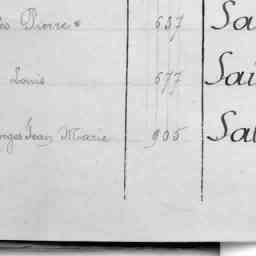 Pierre 637 Sa
Louis 677 Sai
Jean Marie 905 Sal